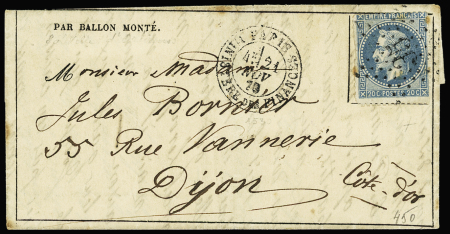 PAR BALLON MONTÉ.
PARIS
4E 21
NOV
70
EMPIRE FRANÇAIS
20 C POSTES 20 C
Monsieur Madame
Jules Bornier
55 Rue Vannerie
Dijon
Côte-d'or
450